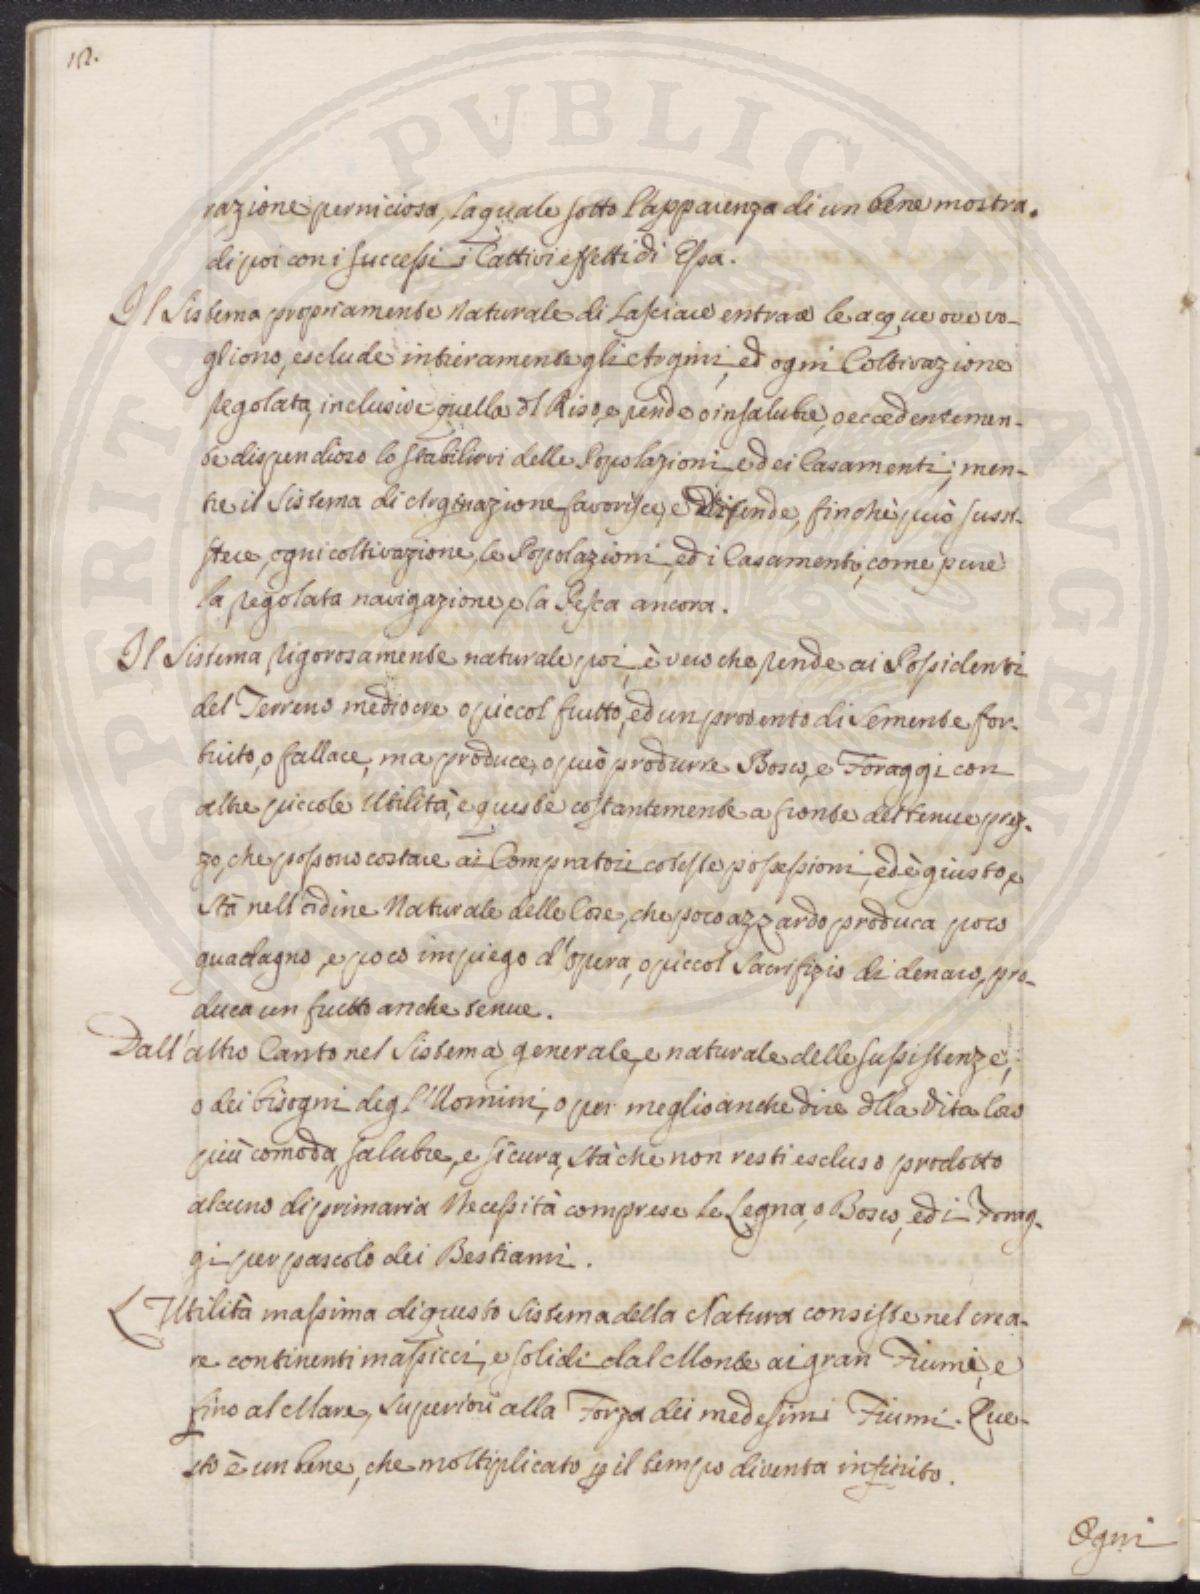 12.
razione perniciosa, la quale sotto l'apparenza di un bene mostra
di poi con i successi i Cattivi effetti di Essa.
Il Sistema propriamente Naturale di Lasciare entrare le acque ove vo-
gliono, esclude intieramente gli Argini, ed ogni Coltivazione
regolata, inclusive quella del Riso, e rende o insalubre, o eccedentemen-
te dispendioso lo stabilirvi delle Popolazioni e dei Casamenti; men-
tre il Sistema di Arginazione favorisce, e difende, finchè può sussi-
stere, ogni coltivazione, le Popolazioni, ed i Casamenti, come pure
la regolata navigazione, e la Pesca ancora.
Il Sistema rigorosamente naturale poi, è vero che rende ai Possidenti
del Terreno mediocre o piccol frutto, ed un provento di Semente for-
tuito, o fallace, ma produce, o può produrre Bosco, e Foraggi con
altre piccole Utilità, e queste costantemente a fronte del tenue prez-
zo, che possono costare ai Compratori coteste possessioni, ed è giusto, e
stà nell'ordine Naturale delle Cose, che poco azzardo produca poco
guadagno, e poco impiego d'opera, o piccol Sacrifizio di denaro, pro-
duca un frutto anche tenue.
Dall'altro Canto nel Sistema generale, e naturale delle sussistenze,
o dei bisogni degl'Uomini, o per meglio anche dire della Vita loro
più comoda, salubre, e sicura, stà che non resti escluso prodotto
alcuno di primaria Necessità comprese le Legna, o Bosco, ed i Forag-
gi per pascolo dei Bestiami.
L'Utilità massima di questo Sistema della Natura consiste nel crea-
re continenti massicci, e solidi dal Monte ai gran Fiumi, e
fino al Mare, superiori alla Forza dei medesimi Fiumi. Que-
sto è un bene, che moltiplicato p il tempo diventa infinito.
Ogni
SPERITAS PVBLICA AVGENDA